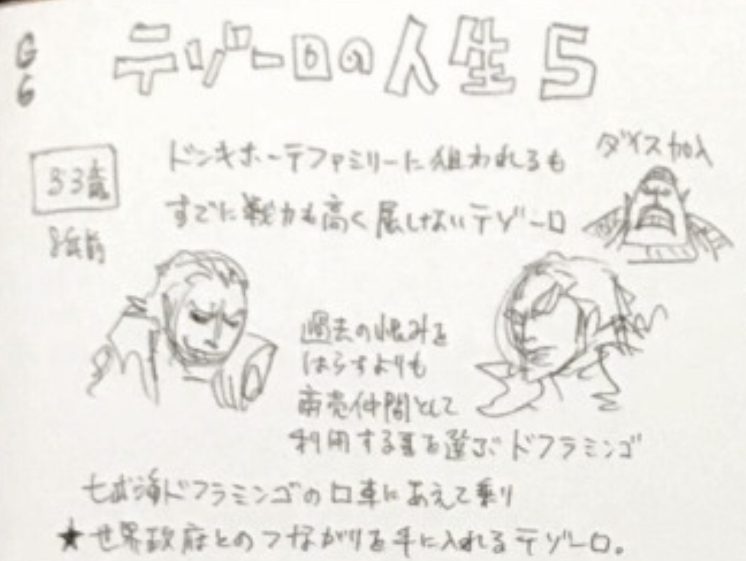 GG
テゾーロの人生 5
33歳
8年前
ドンキホーテファミリーに狙われるも
すでに戦力も高く屈しないテゾーロ
ダイス加入
過去の恨みを
はらすよりも
商売仲間として
利用する事を選ぶドフラミンゴ
七武海ドフラミンゴの口車にあえて乗り
★世界政府とのつながりを手に入れるテゾーロ。